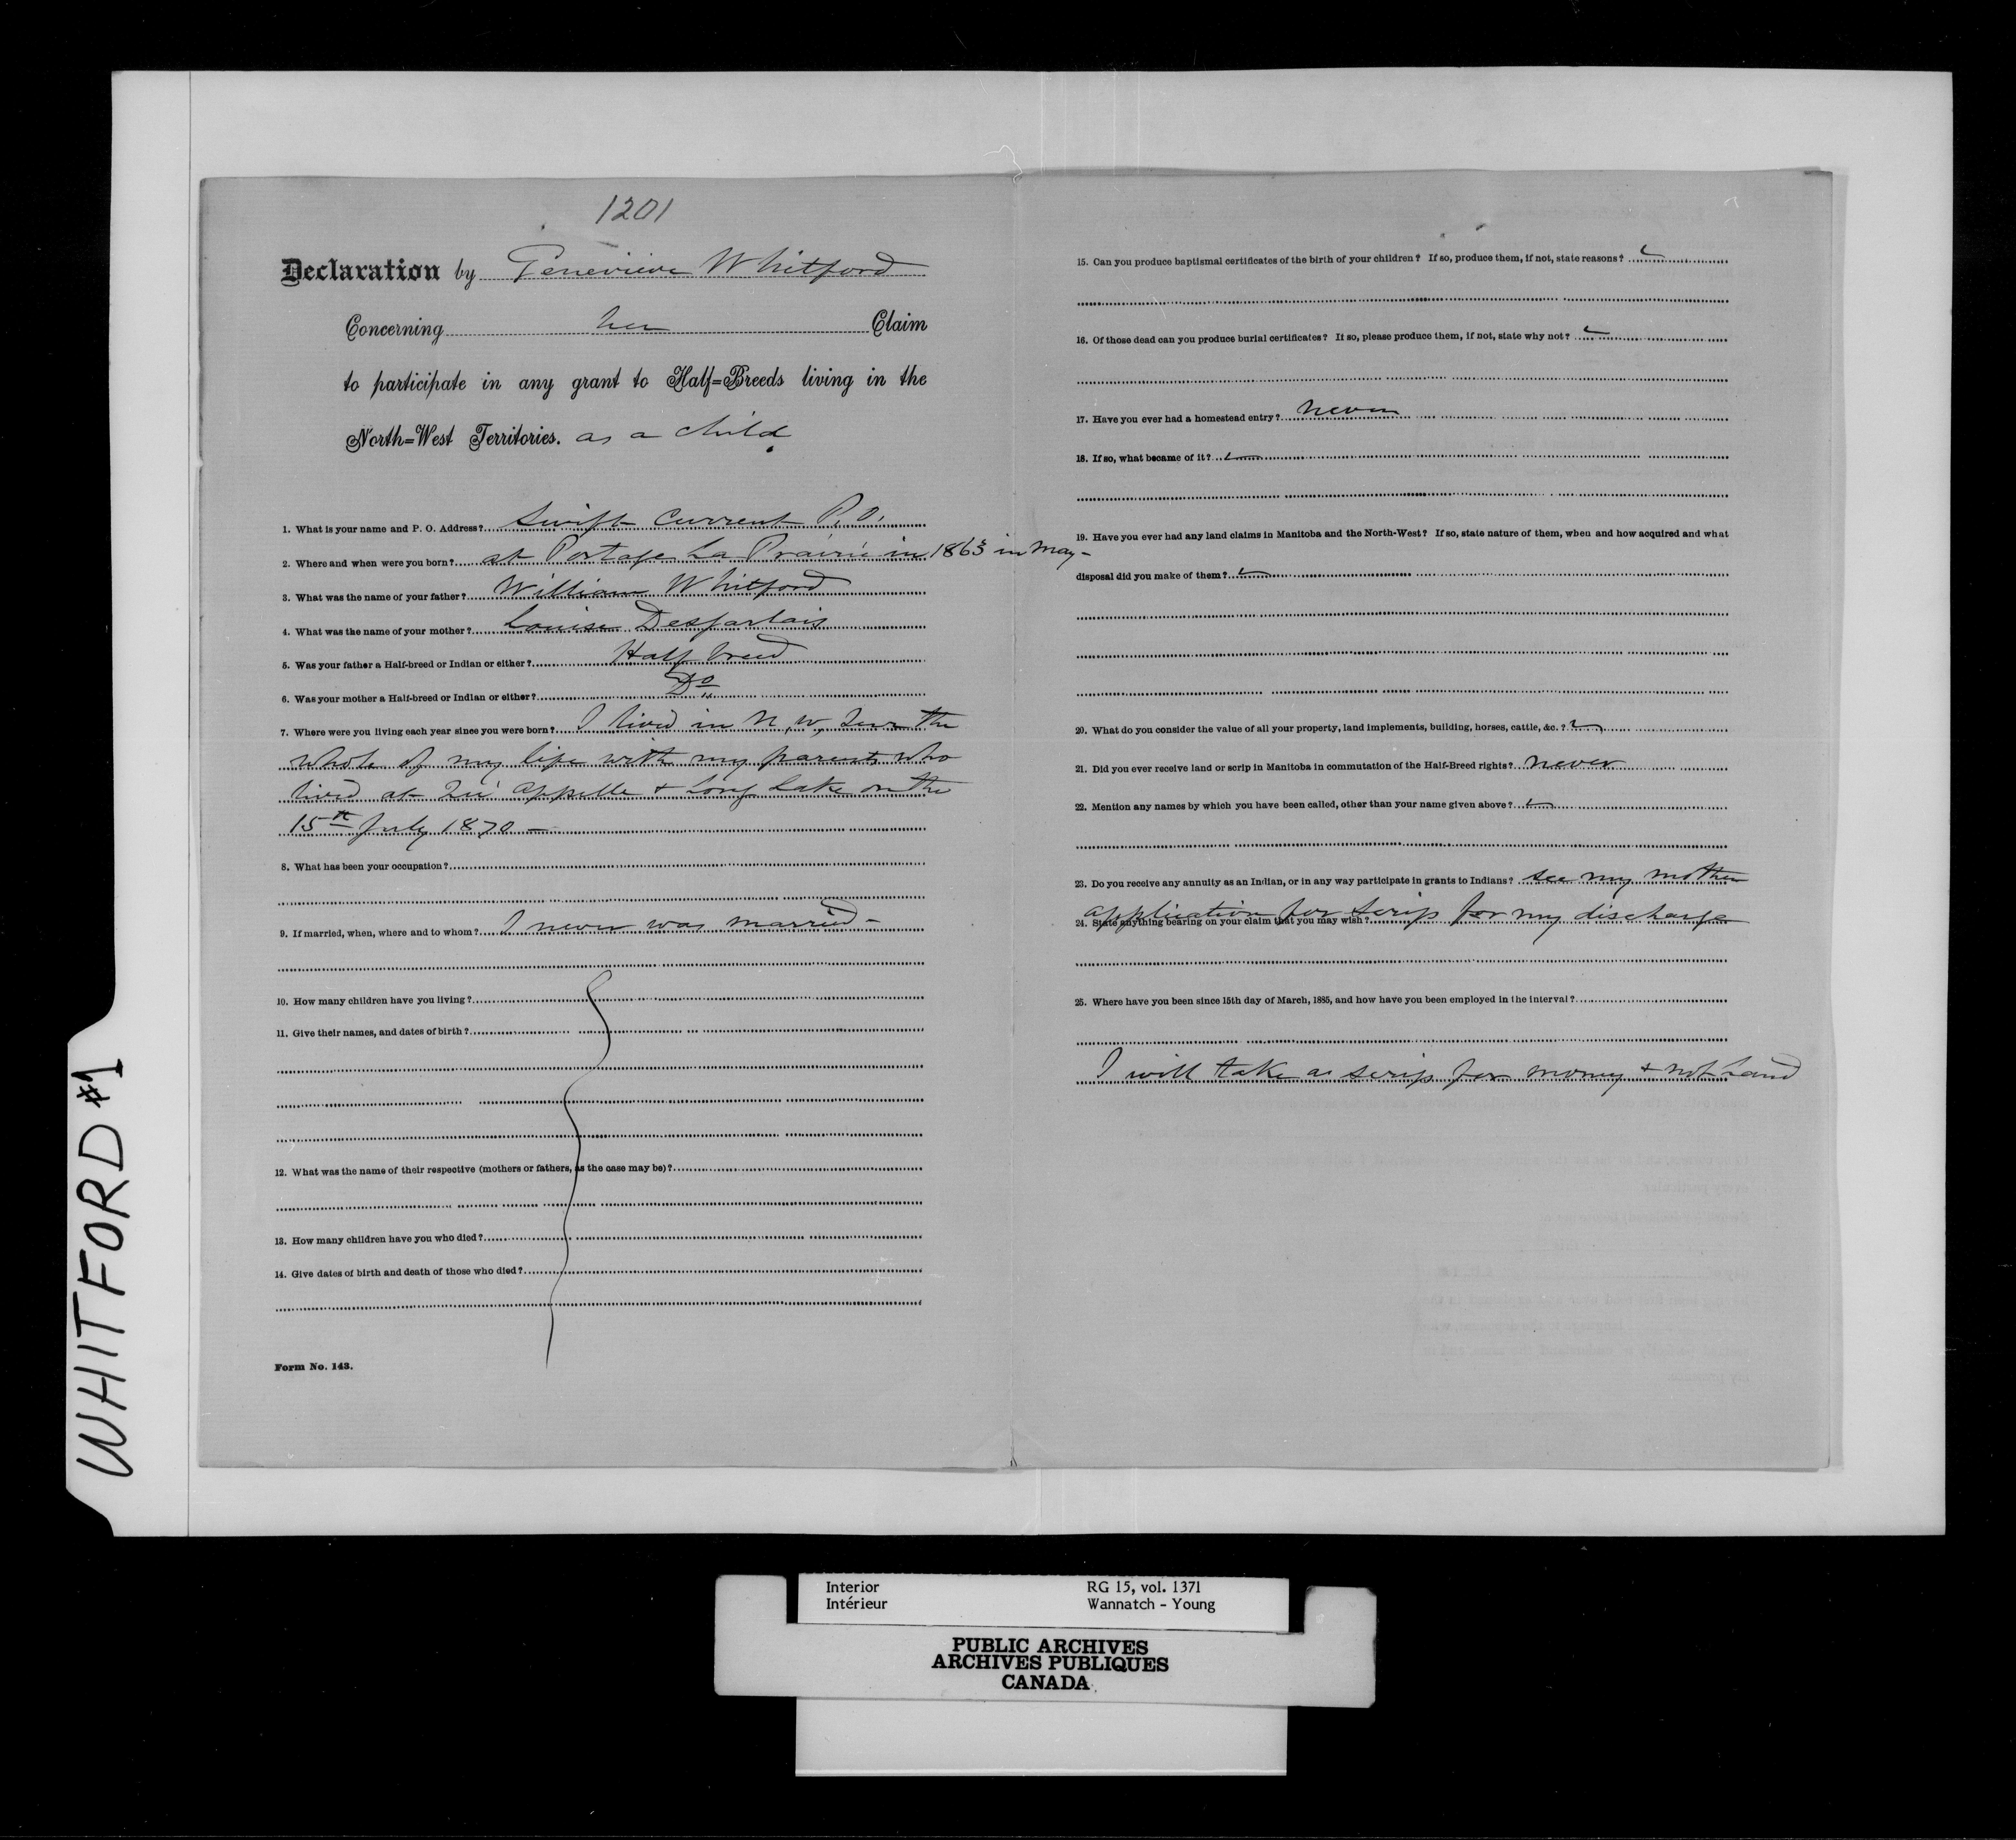 1201
Declaration by Genevieve Whitford
Concerning her Claim
to participate in any grant to Half=Breeds living in the
North=West Territories. as a child
1. What is your name and P. O. Address? Swift Current P.O.
2. Where and when were you born? at Portage La Prairie in 1863 in May -
3. What was the name of your father? William Whitford
4. What was the name of your mother? Louise Desjarlais
5. Was your father a Half-breed or Indian or either? Half breed
6. Was your mother a Half-breed or Indian or either? Do
7. Where were you living each year since you were born? I lived in N. W. Terr the
whole of my life with my parents who
lived at Qu' Appelle & Long Lake on the
15th July 1870 —
8. What has been your occupation?
9. If married, when, where and to whom? I never was married -
10. How many children have you living?
11. Give their names, and dates of birth?
12. What was the name of their respective (mothers or fathers, as the case may be)?
13. How many children have you who died?
14. Give dates of birth and death of those who died?
Form No. 143.
15. Can you produce baptismal certificates of the birth of your children? If so, produce them, if not, state reasons?
16. Of those dead can you produce burial certificates? It so, please produce them, if not, state why not?
17. Have you ever had a homestead entry? never
18. If so, what became of it?
19. Have you ever had any land claims in Manitoba and the North-West? If so, state nature of them, when and how acquired and what
disposal did you make of them?
20. What do you consider the value of all your property, land implements, building, horses, cattle, &c. ?
21. Did you ever receive land or scrip in Manitoba in commutation of the Half-Breed rights? never
22. Mention any names by which you have been called, other than your name given above?
23. Do you receive any annuity as an Indian, or in any way participate in grants to Indians? see my mother
application for scrip for my discharge
24. State anything bearing on your claim that you may wish?
25. Where have you been since 15th day of March, 1885, and how have you been employed in the interval?
I will take a scrip for money & not Land
WHITFORD #1
Interior RG 15, vol. 1371
Intérieur Wannatch - Young
PUBLIC ARCHIVES
ARCHIVES PUBLIQUES
CANADA